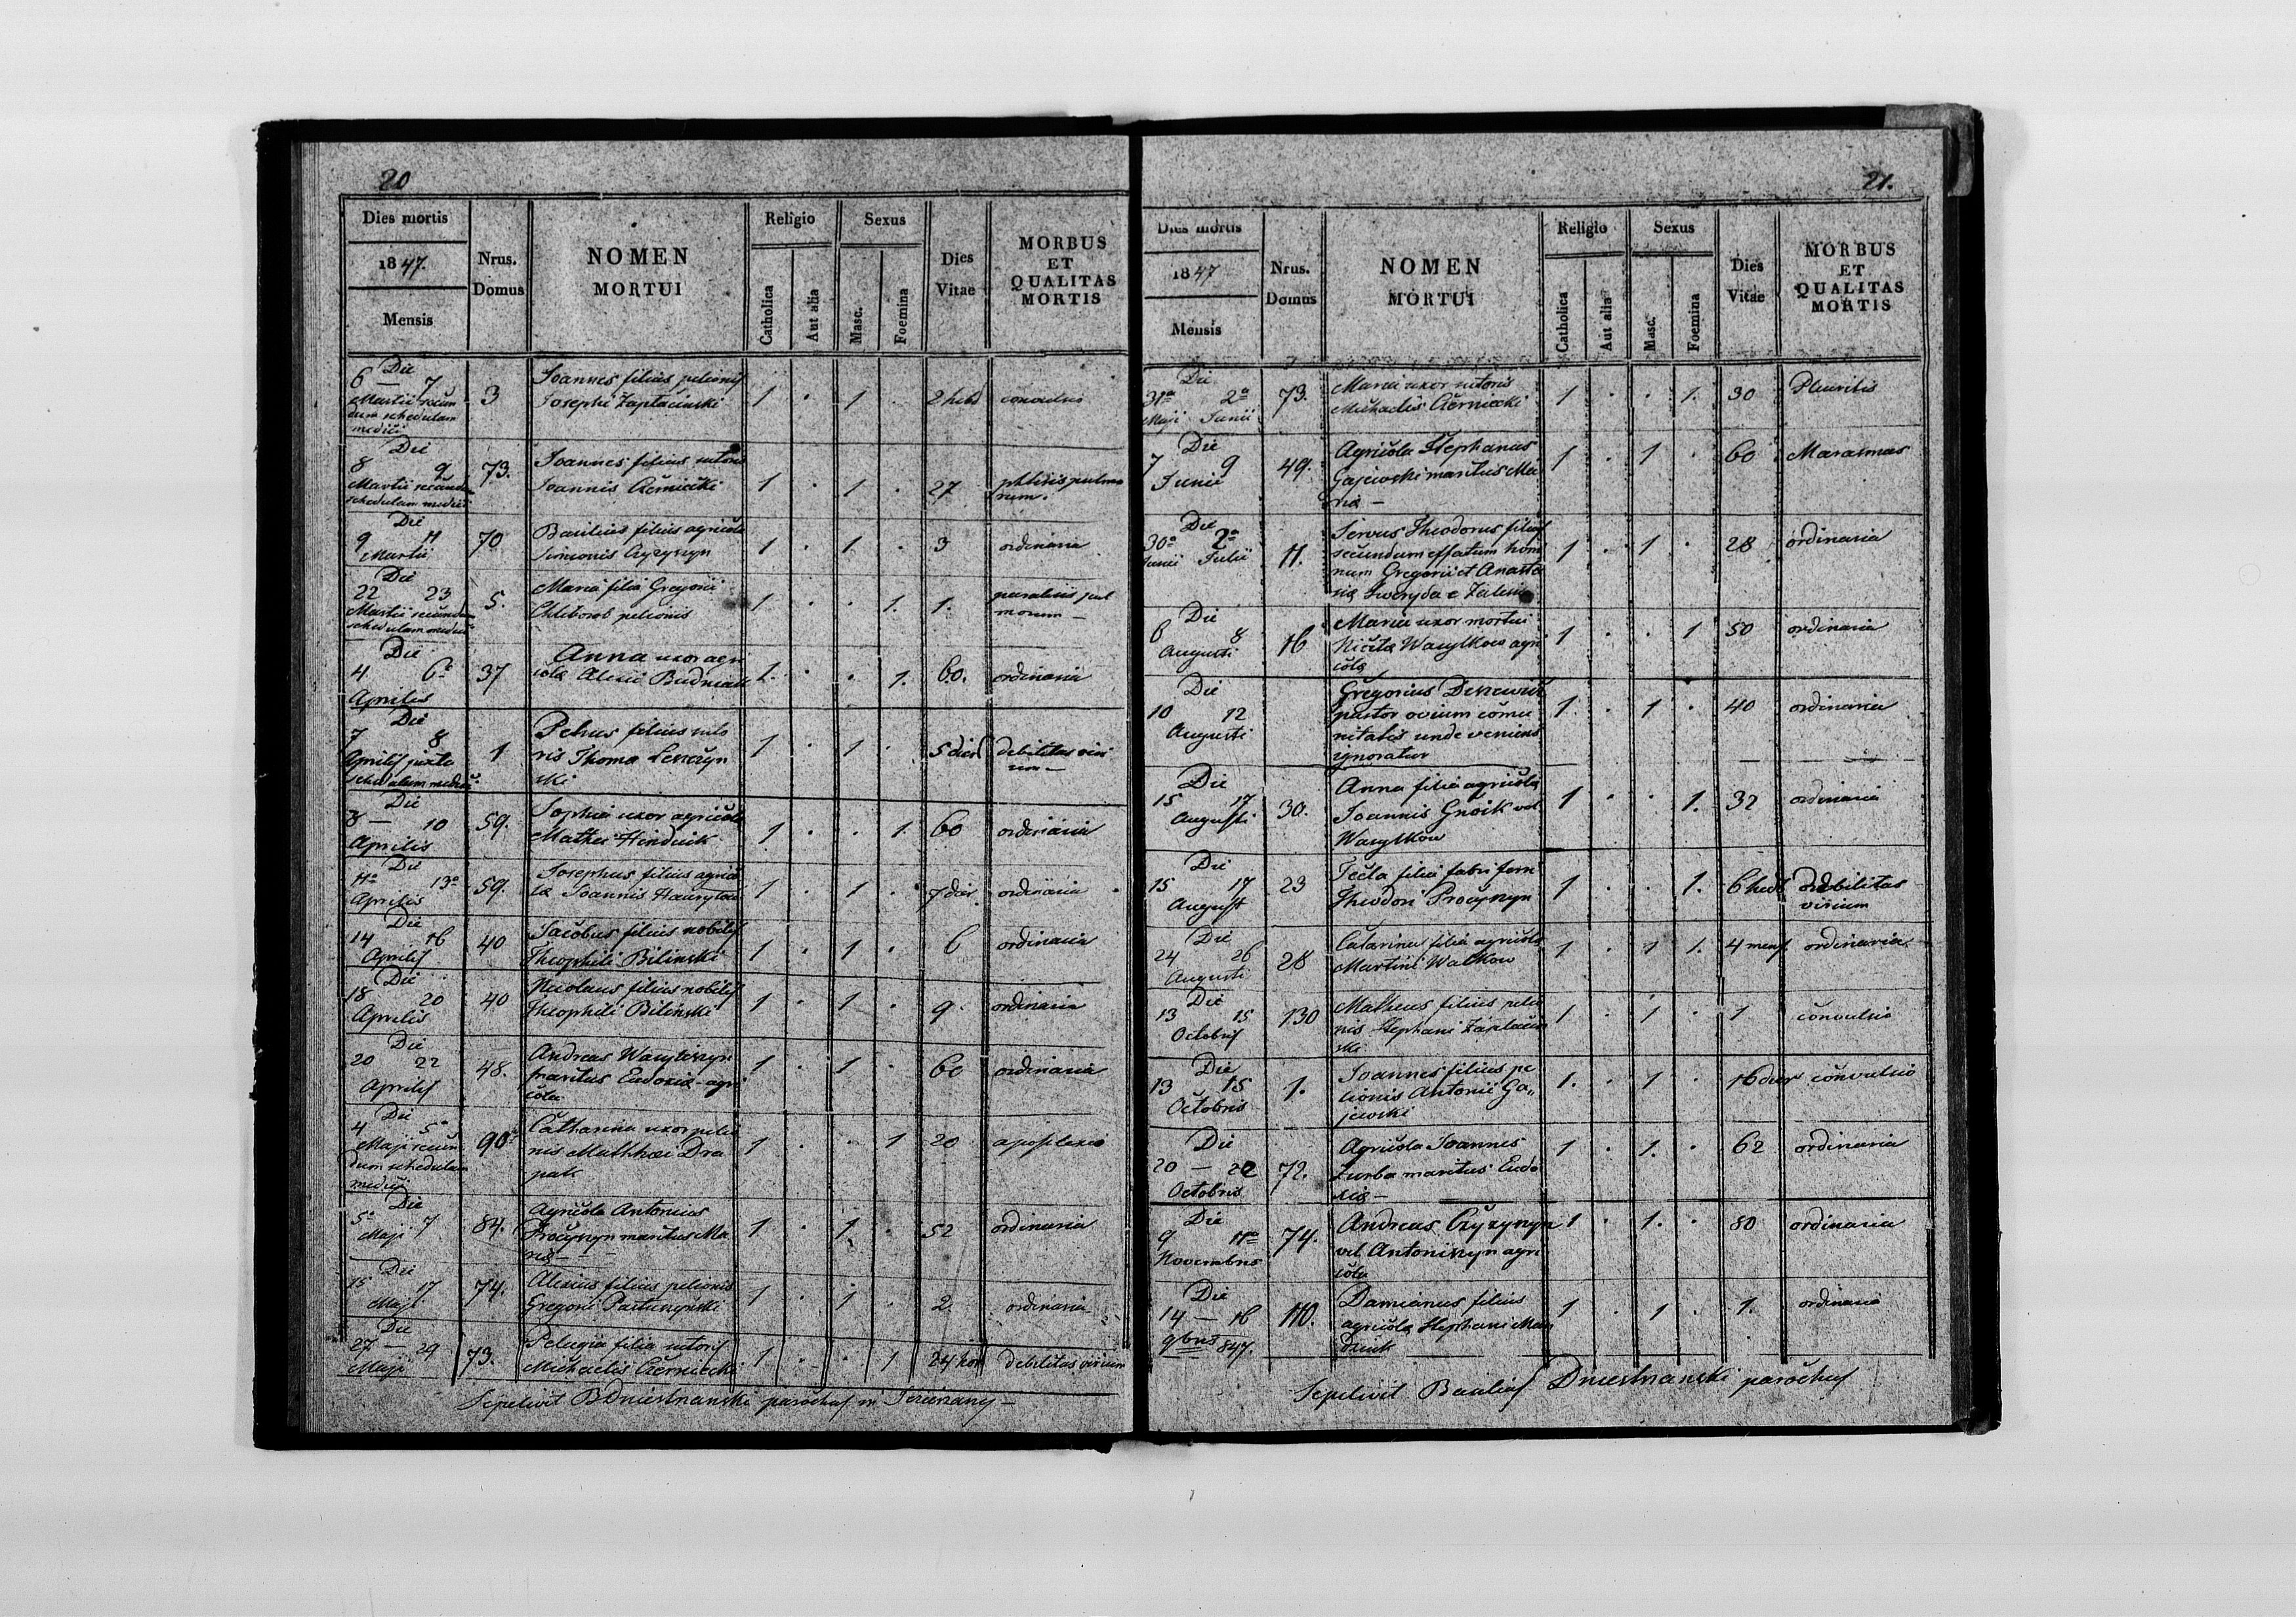 20
Dies mortis
1847.
Mensis
Nrus.
Domus
NOMEN
MORTUI
Religio
Catholica
Aut alia
Sexus
Masc.
Foemina
Dies
Vitae
MORBUS
ET
QUALITAS
MORTIS
Die
6 — 7
Martii secun
dum schedulam
medici
3
Joannes filius pelionis
Josephi Zaplacinski
1 . 1 2 hebd convulsio
Die
8 9
Martii secundum
schedulam medici
73.
Joannes filius sutoris
Joannis Czerniecki
1 . 1 . 27
phtisis pulmo
num.
Die
9 11
Martii
70
Basilius filius agricolæ
Simionis Czyzyszyn
1 . 1 . 3 ordinaria
Die
22 23
Martii secundum
schedulam medici
5.
Maria filia Gregorii
Chleborob pelionis
1 . . 1. 1.
paralisis pul
monum —
Die
4 6
Aprilis
37
Anna uxor agri
colæ Alexii Budniak
1. . . 1. 60. ordinaria
Die
7 8
Aprilis juxta
schedulam medici
1
Petrus filius suto
ris Thomæ Leszczyn
ski
1 . 1 . 5 dier debilitas viri
um —
Die
8 — 10
Aprilis
59.
Sophia uxor agricolæ
Mathei Hindiuk
1 . . 1. 60 ordinaria
Die
11º 13º
Aprilis
59.
Josephus filius agrico
læ Joannis
1 . 1 . 7 dier. ordinaria
Die
14 16
Aprilis
40
Jacobus filius nobilis
Theophili Bilinski
1 . 1 . 6 ordinaria
Die
18 20
Aprilis
40
Nicolaus filius nobilis
Theophili Bilinski
1 . 1 . 9. ordinaria
Die
20 22
Aprilis
48.
Andreas Wasyliszyn
maritus Eudoxiæ agri
cola
1 . 1 . 60 ordinaria
Die
4 5
Maji secun
dum schedulam
medici
90
Catharina uxor pelio
nis Matthæi Dra
pak
1 . . 1 20 apoplexia
Die
5 7
Maji
84.
Agricola Antonius
Procyszyn maritus Ma
riæ —
1 . 1 . 52 ordinaria
Die
15 17
Maji
74.
Alexius filius pelionis
Gregorii
1 . 1 . 2. ordinaria
Die
27 — 29
Maji
73.
Pelagia filia sutoris
Michaelis Czerniecki
1 . . 1 24 hor debilitas virium
Sepelivit B Dniestrzanski parochus in
21.
Dies mortis
1847
Mensis
Nrus.
Domus
NOMEN
MORTUI
Religio
Catholica
Aut alia
Sexus
Masc.
Foemina
Dies
Vitae
MORBUS
ET
QUALITAS
MORTIS
Die
31ª 2ª
Maji Junii
73.
Maria uxor sutoris
Michaelis Czerniecki
1 . . 1. 30 Pleuritis
Die
7 9
Junii
49.
Agricola Stephanus
Gajewski maritus Ma
riæ —
1 . 1 . 60 Marasmus
Die
30ª 2ª
Junii Julii
11.
Servus Theodorus filius
secundum effatum homi
num Gregorii et Anasta
siæ
1 . 1 . 28 ordinaria
Die
6 8
Augusti
16
Maria uxor mortui
Nicitæ Wasylkow agri
colæ
1 . . 1 50 ordinaria
Die
10 12
Augusti
Gregorius
pastor ovium comu
nitatis unde veniens
ignoratur
1 . 1 . 40 ordinaria
Die
15 17
Augusti
30.
Anna filia agricolæ
Joannis Gnoik vel
Wasylkow
1 . . 1. 32 ordinaria
Die
15 17
August
23
Tecla filia fabri ferri
Theodori Procyszyn
1 . . 1. 6 hebd debilitas
virium
Die
24 26
Augusti
28
Catarina filia agricolæ
Martini Walkow
1 . 1 1. 4 mens ordinaria
Die
13 15
Octobris
130
Matheus filius pelio
nis Stephani Zaplacin
ski
1 . 1 . 1 convulsio
Die
13 15
Octobris
1.
Joannes filius pe
lionis Antonii Ga„
jewski
1. . 1 . 16 dier convulsio
Die
20 — 22
Octobris
72.
Agricola Joannes
Zurba maritus Eudo
xiæ —
1 . 1. . 62 ordinaria
Die
9 11
Novembris
74.
Andreas Czyzyszyn
vel Antoniszyn agri
cola
1 . 1. . 80 ordinaria
Die
14 — 16
9bris 847.
110.
Damianus filius
agricolæ Stephani Man
dziuk
1 . 1 . 1. ordinaria
Sepelivit Basilius Dniestrzanski parochus